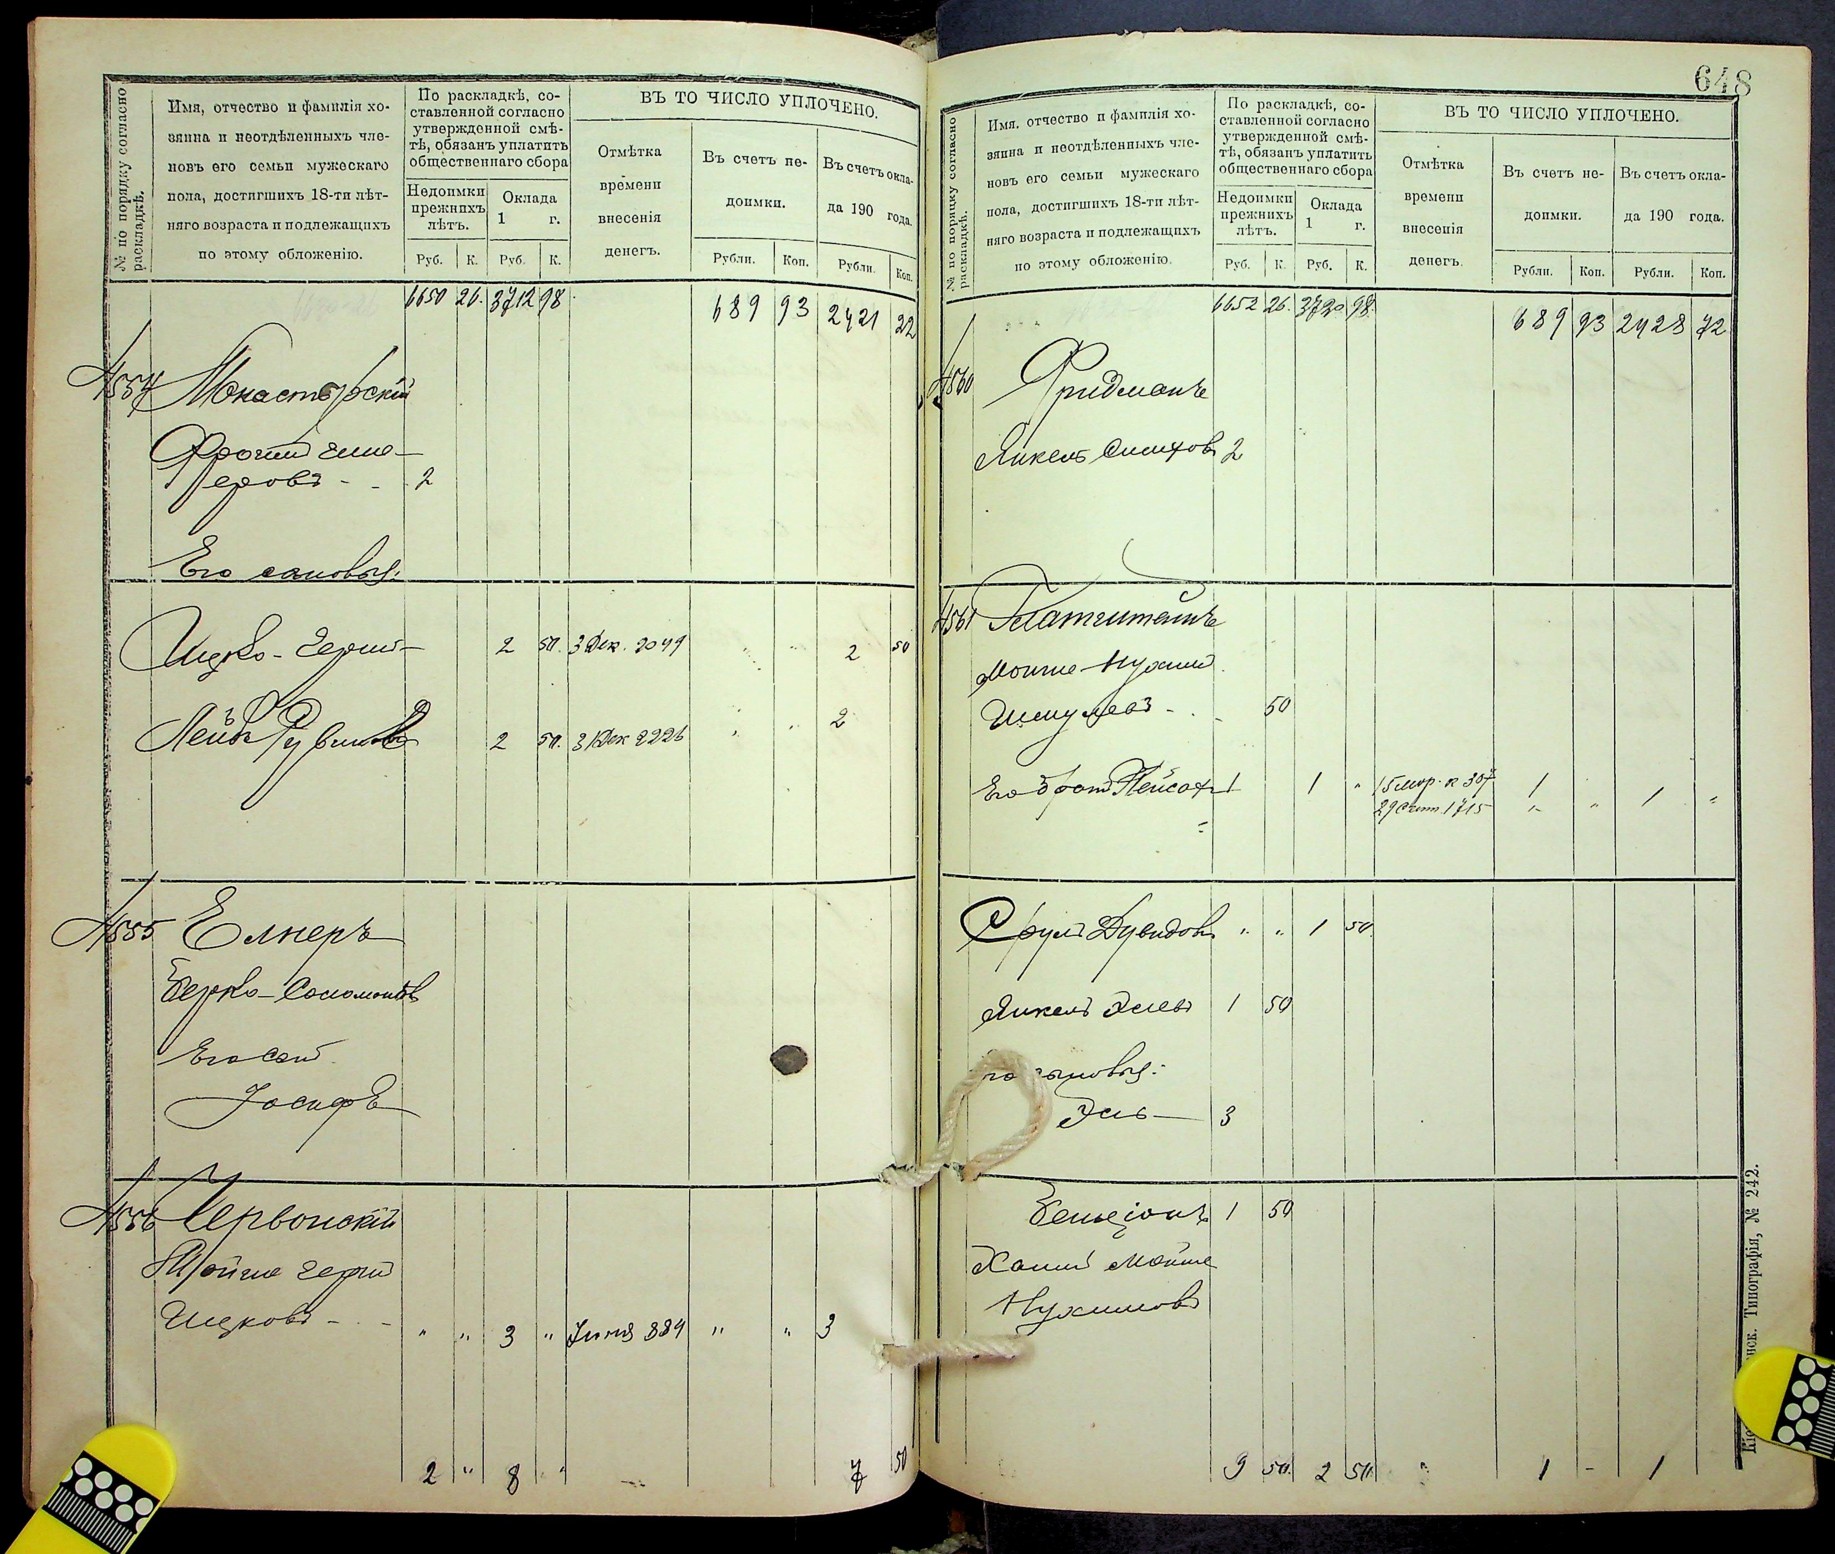 № по порядку согласно раскладкѣ.
Имя, отчество и фамилія хо-
зяина и неотдѣленныхъ чле-
новъ его семьи мужескаго
пола, достигшихъ 18-ти лѣт-
няго возраста и подлежащихъ
по этому обложенію.
По раскладкѣ, со-
ставленной согласно
утвержденной смѣ-
тѣ, обязанъ уплатить
общественнаго сбора
Недоимки
прежнихъ
лѣтъ.
Оклада
1 г.
Руб. К. Руб. К.
ВЪ ТО ЧИСЛО УПЛОЧЕНО.
Отмѣтка
времени
внесенія
денегъ.
Въ счетъ не-
доимки.
Рубли. Коп.
Въ счетъ окла-
да 190 года.
Рубли. Коп.
6650 26. 3712 98 689 93 2421 22
554 Монастырскій
2
Его сыновья:
Ицко- 2 50. 3 Дек. 2049 " " 2 50
Лейбъ Рувиновъ 2 50. 3 Дек 2226 " " 2
555 Елнеръ
Берко-Соломоновъ
Его сынъ
Іосифъ
556 Червонскій
Ицковъ - - " " 3 " Іюня 889 " " 3
2 " 8 " 7 50
648
№ по порядку согласно раскладкѣ.
Имя, отчество и фамилія хо-
зяина и неотдѣленныхъ чле-
новъ его семьи мужескаго
пола, достигшихъ 18-ти лѣт-
няго возраста и подлежащихъ
по этому обложенію.
По раскладкѣ, со-
ставленной согласно
утвержденной смѣ-
тѣ, обязанъ уплатить
общественнаго сбора
Недоимки
прежнихъ
лѣтъ.
Оклада
1 г.
Руб. К. Руб. К.
ВЪ ТО ЧИСЛО УПЛОЧЕНО.
Отмѣтка
времени
внесенія
денегъ.
Въ счетъ не-
доимки.
Рубли. Коп.
Въ счетъ окла-
да 190 года.
Рубли. Коп.
6652 26. 3720 98. 689 93 2428 72
560 Фридманъ
Янкель Симховъ 2
561 Глатштейнъ
Мойше-Нухимъ
Шмулевъ - - 50
Его братъ Пейсахъ 1 1 " 15 мар. к 307 1 1 "
29 Сент. 1715 " "
Сруль Дувидовъ " " 1 50.
Янкель Эльевъ 1 50
сыновья:
Эль 3
Бенціонъ 1 50
Хаимъ Мойше
Нухимовъ
9 50. 2 50. " 1 - 1
Типографія, № 242.